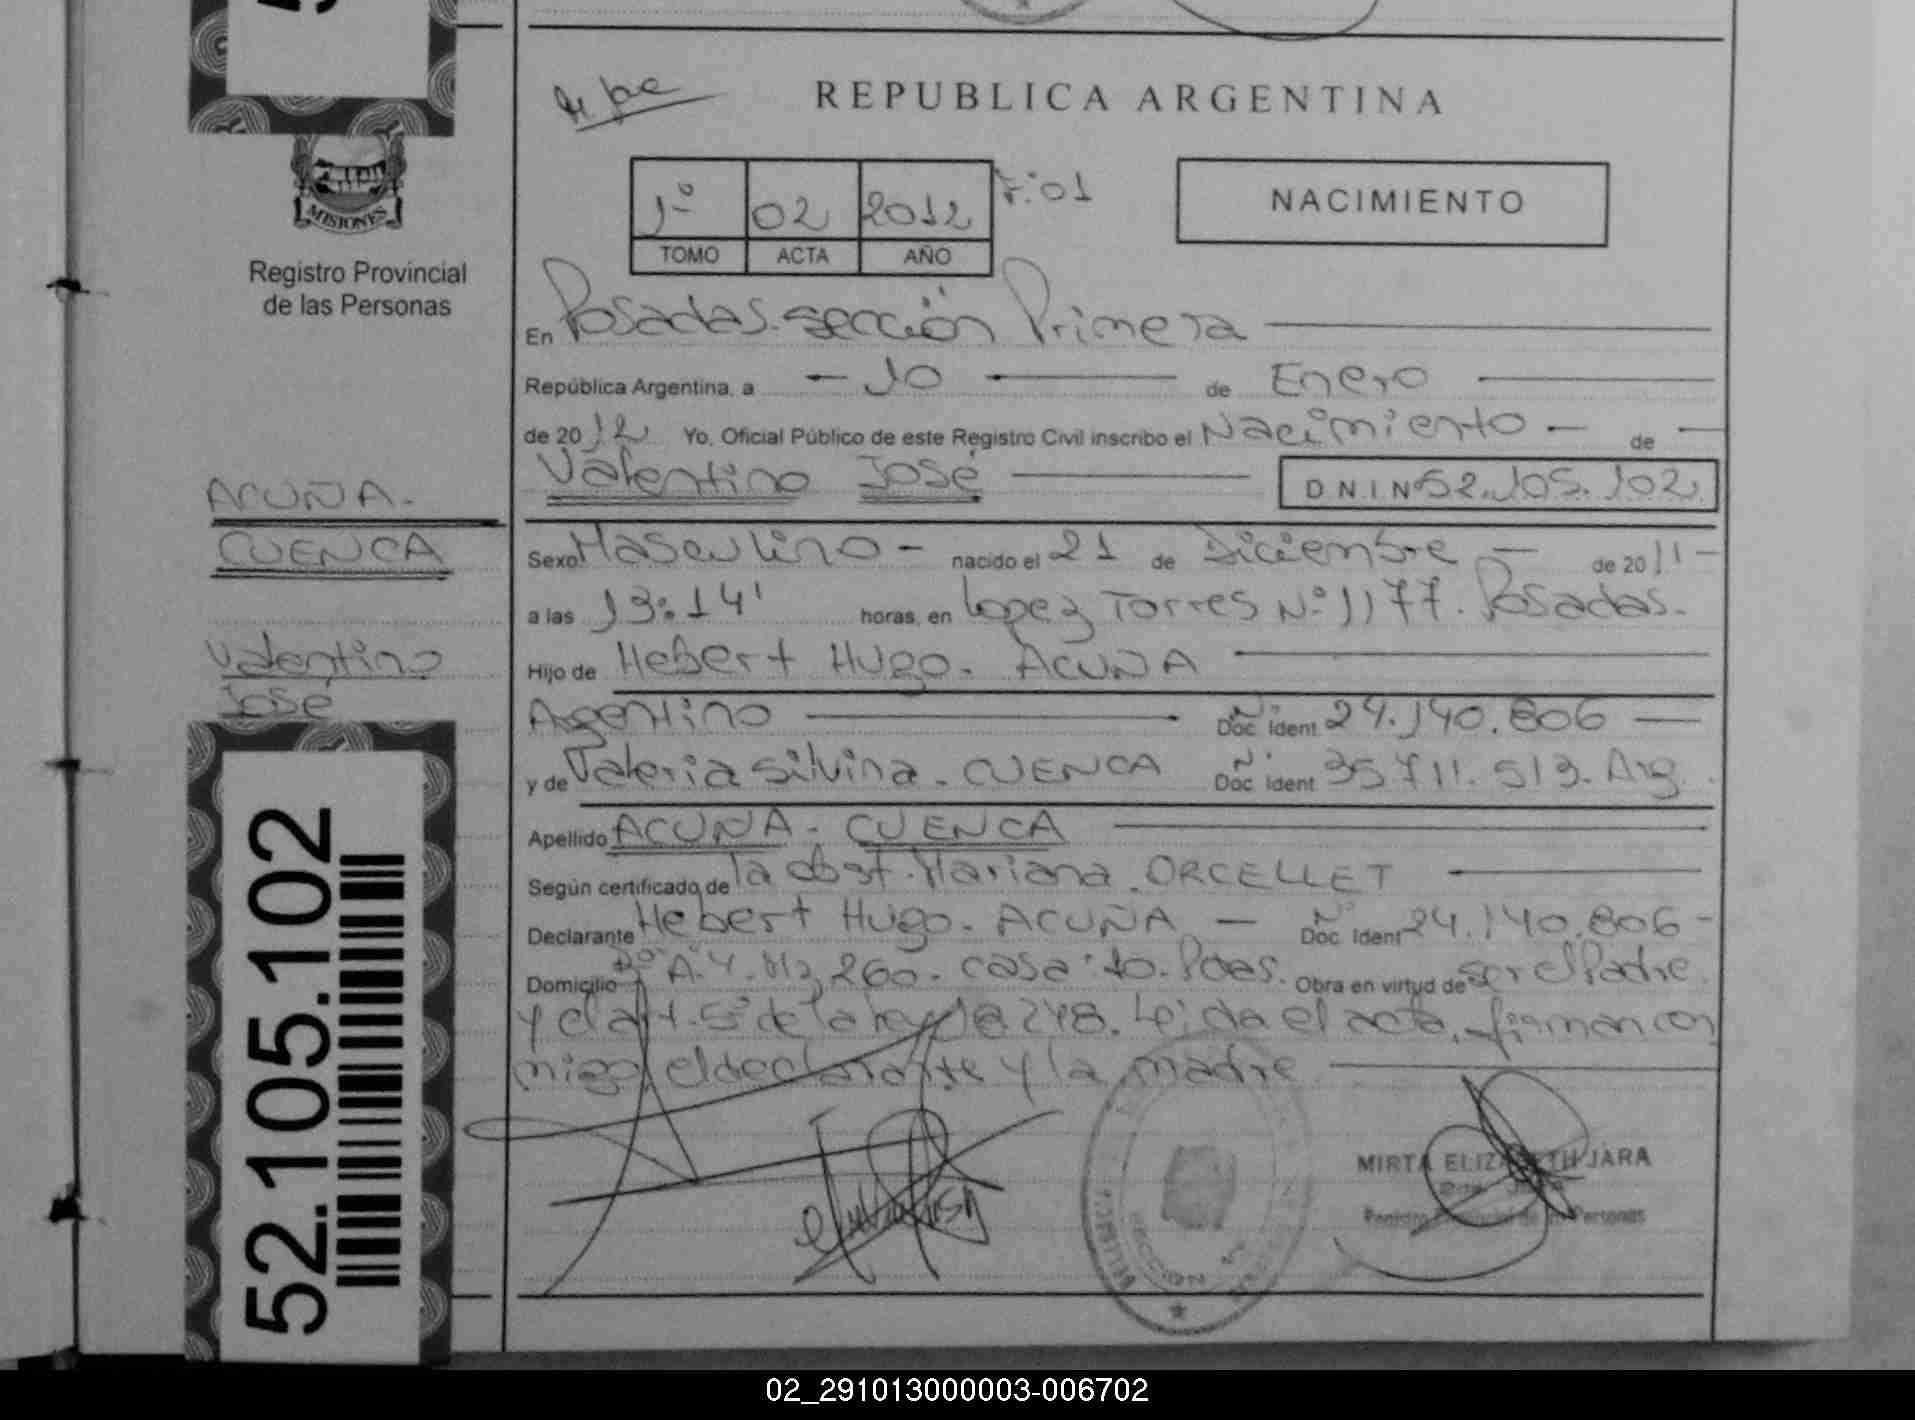 REPUBLICA ARGENTINA
1º 02 2012 F:01
TOMO ACTA AÑO
NACIMIENTO
MISIONES
Registro Provincial
de las Personas
En Posadas. sección Primera
República Argentina, a 10 de Enero
de 2012 Yo, Oficial Público de este Registro Civil inscribo el Nacimiento de
Valentino José DNI Nº 52.105.102
ACUÑA-
CUENCA
Valentino
José
Sexo Masculino nacido el 21 de Diciembre de 2011
a las 13:14' horas, en Lopez Torres Nº 1177. Posadas.
Hijo de Hebert Hugo. ACUÑA
Argentino Nº Doc. Ident 24.140.806
y de Valeria Silvina. CUENCA Nº Doc. Ident 35.711.513. Arg.
Apellido ACUÑA - CUENCA
Según certificado de la obst. Mariana. ORCELLET
Declarante Hebert Hugo. ACUÑA Nº Doc. Ident 24.140.806
Domicilio "A.4. Mz 260. casa:10. Pdas. Obra en virtud de ser el Padre
y el art. 5º de la ley 18248. Leida el acta, firman con
migo, el declarante y la madre
SECCION
MIRTA ELIZABETH JARA
Registro Provincial de las Personas
52.105.102
02_291013000003-006702